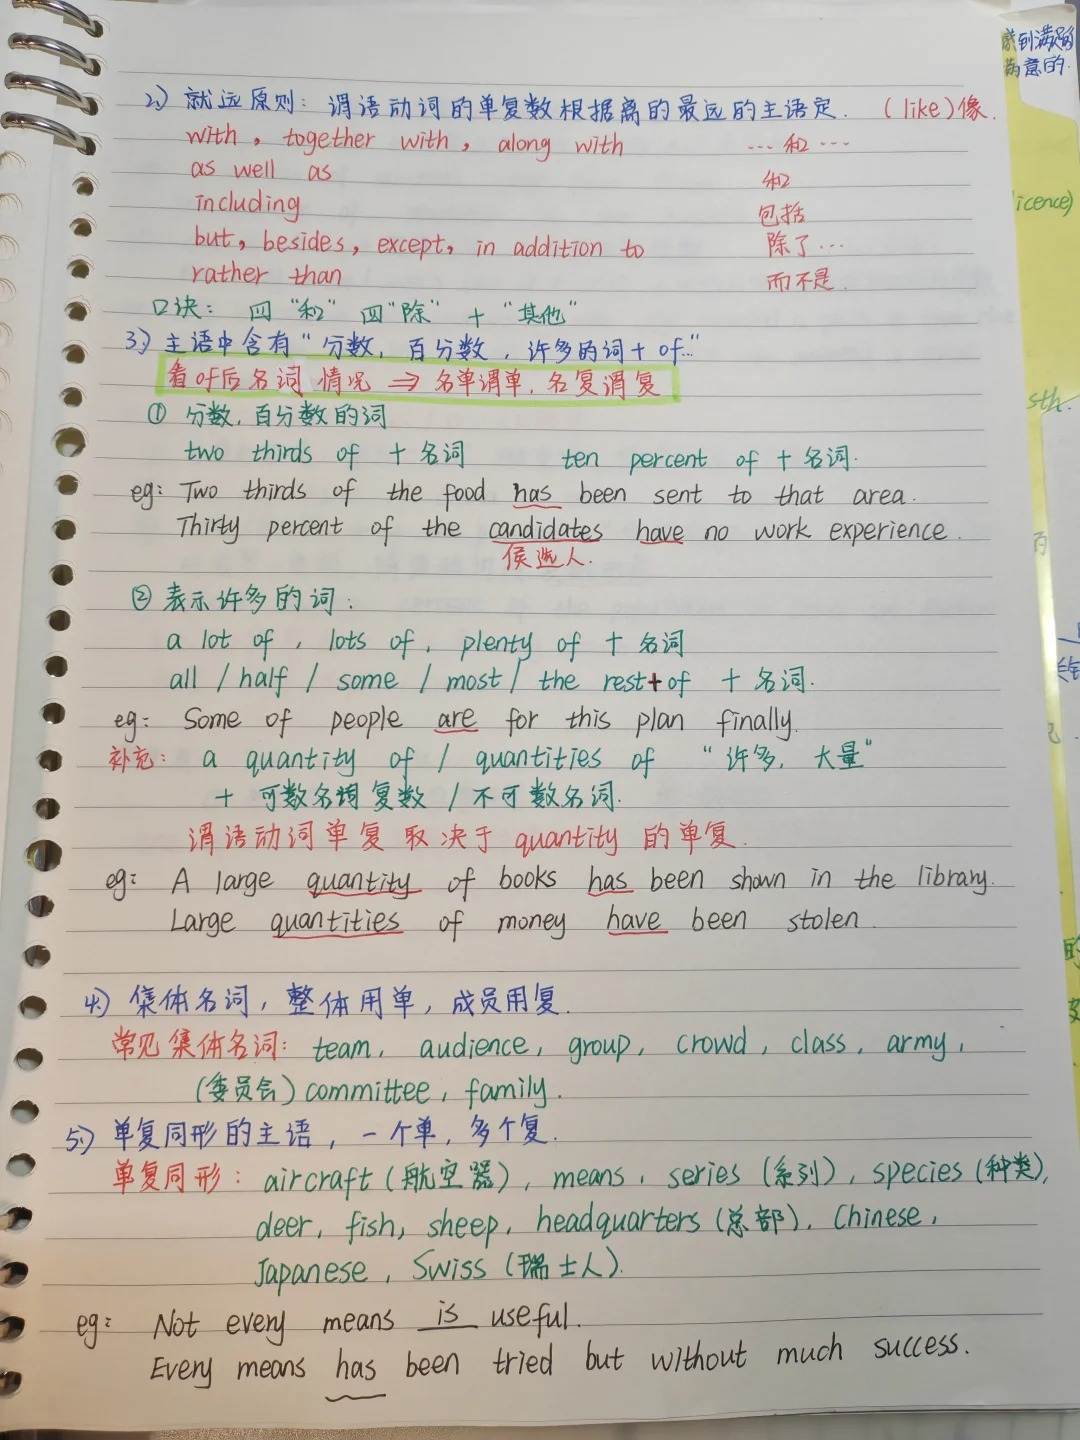 2.) 就远原则: 谓语动词的单复数根据离的最远的主语定. (like)像.
with, together with, along with ···和···
as well as 和
including 包括
but, besides, except, in addition to 除了···
rather than 而不是.
口诀: 四“和”四“除”+“其他”
3.) 主语中含有“分数, 百分数, 许多的词+ of…”
看of后名词情况 ⇒ 名单谓单, 名复谓复
① 分数, 百分数的词
two thirds of + 名词 ten percent of + 名词.
eg: Two thirds of the food has been sent to that area.
Thirty percent of the candidates have no work experience.
候选人.
② 表示许多的词:
a lot of, lots of, plenty of + 名词
all / half / some / most / the rest+of + 名词.
eg: Some of people are for this plan finally.
补充: a quantity of / quantities of “许多, 大量”
+ 可数名词复数 / 不可数名词.
谓语动词单复取决于 quantity 的单复.
eg: A large quantity of books has been shown in the library.
Large quantities of money have been stolen.
4.) 集体名词, 整体用单, 成员用复.
常见集体名词: team, audience, group, crowd, class, army,
(委员会) committee, family.
5.) 单复同形的主语, 一个单, 多个复.
单复同形: aircraft (航空器), means, series (系列), species (种类),
deer, fish, sheep, headquarters (总部), Chinese,
Japanese, Swiss (瑞士人).
eg: Not every means is useful.
Every means has been tried but without much success.
licence)
sth.